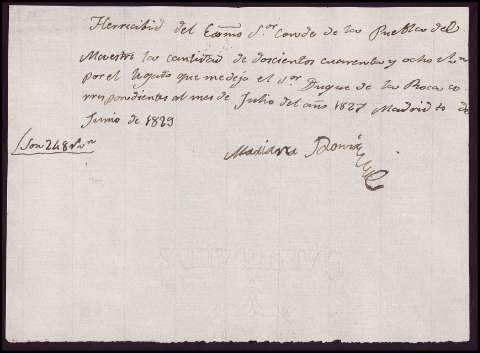 Herrecibid del Exmo Sor Conde de la Puebla del
Maestre la cantidad de doscientos cuarenta y ocho rn
por el legado que me dejo el Sor Duque de la Roca co-
rrespondientes al mes de Julio del año 1827 Madrid 10 de
Junio de 1829
Son 248 rn
Mariana